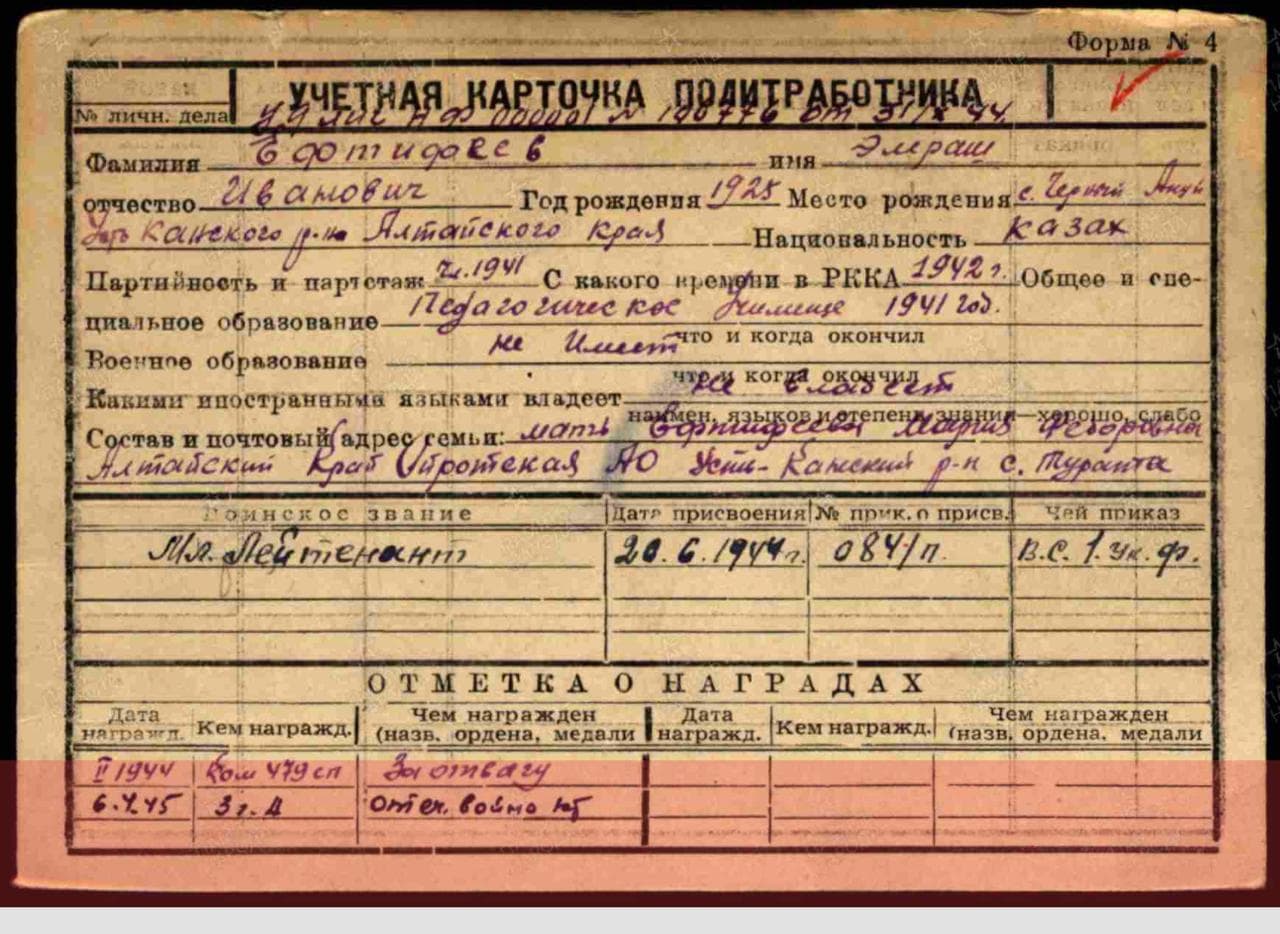 Форма № 4
УЧЕТНАЯ КАРТОЧКА ПОЛИТРАБОТНИКА
№ личн. дела № 190776 от 31/X 44.
Фамилия Ефтифеев имя Эмраш
отчество Иванович Год рождения 1925 Место рождения с. Черный Ануй
Усть Канского р-на Алтайского края Национальность казах
Партийность и партстаж чл. 1941 С какого времени в РККА 1942 г. Общее и спе-
циальное образование Педагогическое училище 1941 год.
что и когда окончил
Военное образование не имеет
что и когда окончил
Какими иностранными языками владеет не владеет
наимен. языков и степень знания—хорошо, слабо
Состав и почтовый адрес семьи: мать Ефтифеева Мария Федоровна
Алтайский Край Ойротская АО Усть-Канский р-н с. Турата
Воинское звание Дата присвоения № прик. о присв. Чей приказ
Мл. Лейтенант 20.6.1944 г. 0841/п. В.С. 1. Ук. ф.
ОТМЕТКА О НАГРАДАХ
Дата награжд. Кем награжд. Чем награжден (назв. ордена, медали Дата награжд. Кем награжд. Чем награжден (назв. ордена, медали
II 1944 Ком 479 сп За отвагу
6.4.45 Отеч. война